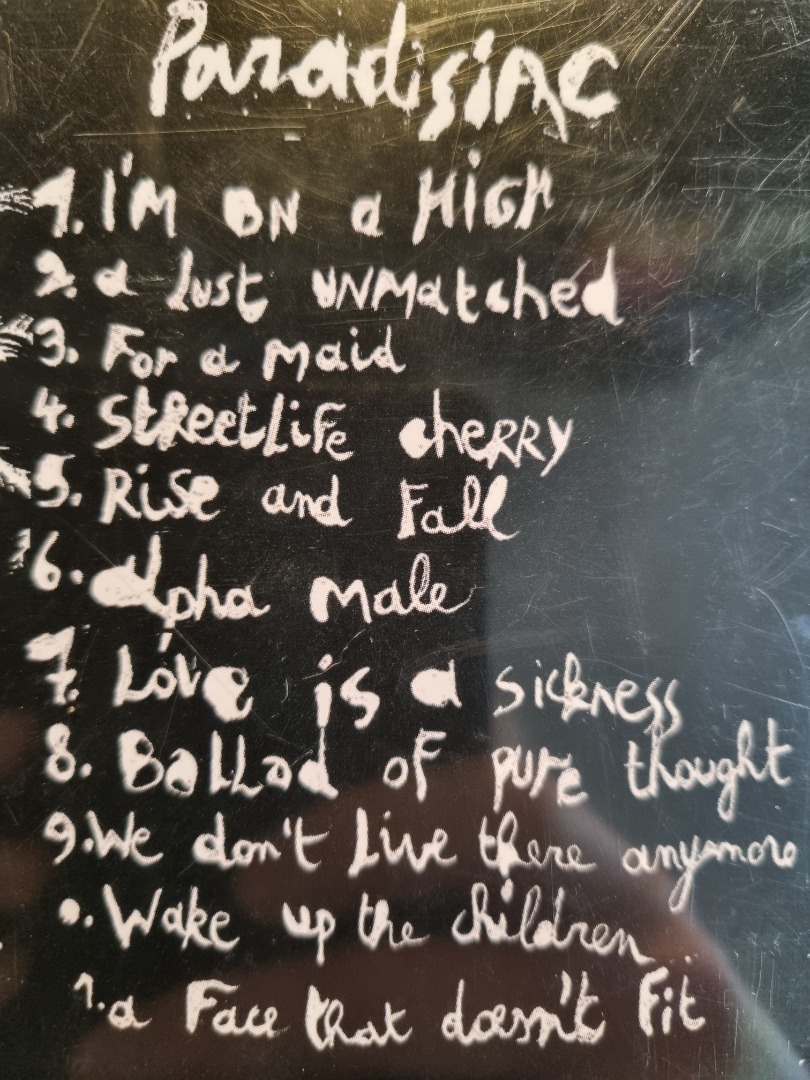 Paradisiac
1. I'M ON a HiGH
2. a Lust UNMatched
3. For a maid
4. StReetLiFe cheRRY
5. RiSe and Fall
6. alpha male
7. Love is a sickness
8. BaLLad oF pure thought
9. We don't Live there anymore
0. Wake up the children
1. a Face that doesn't Fit